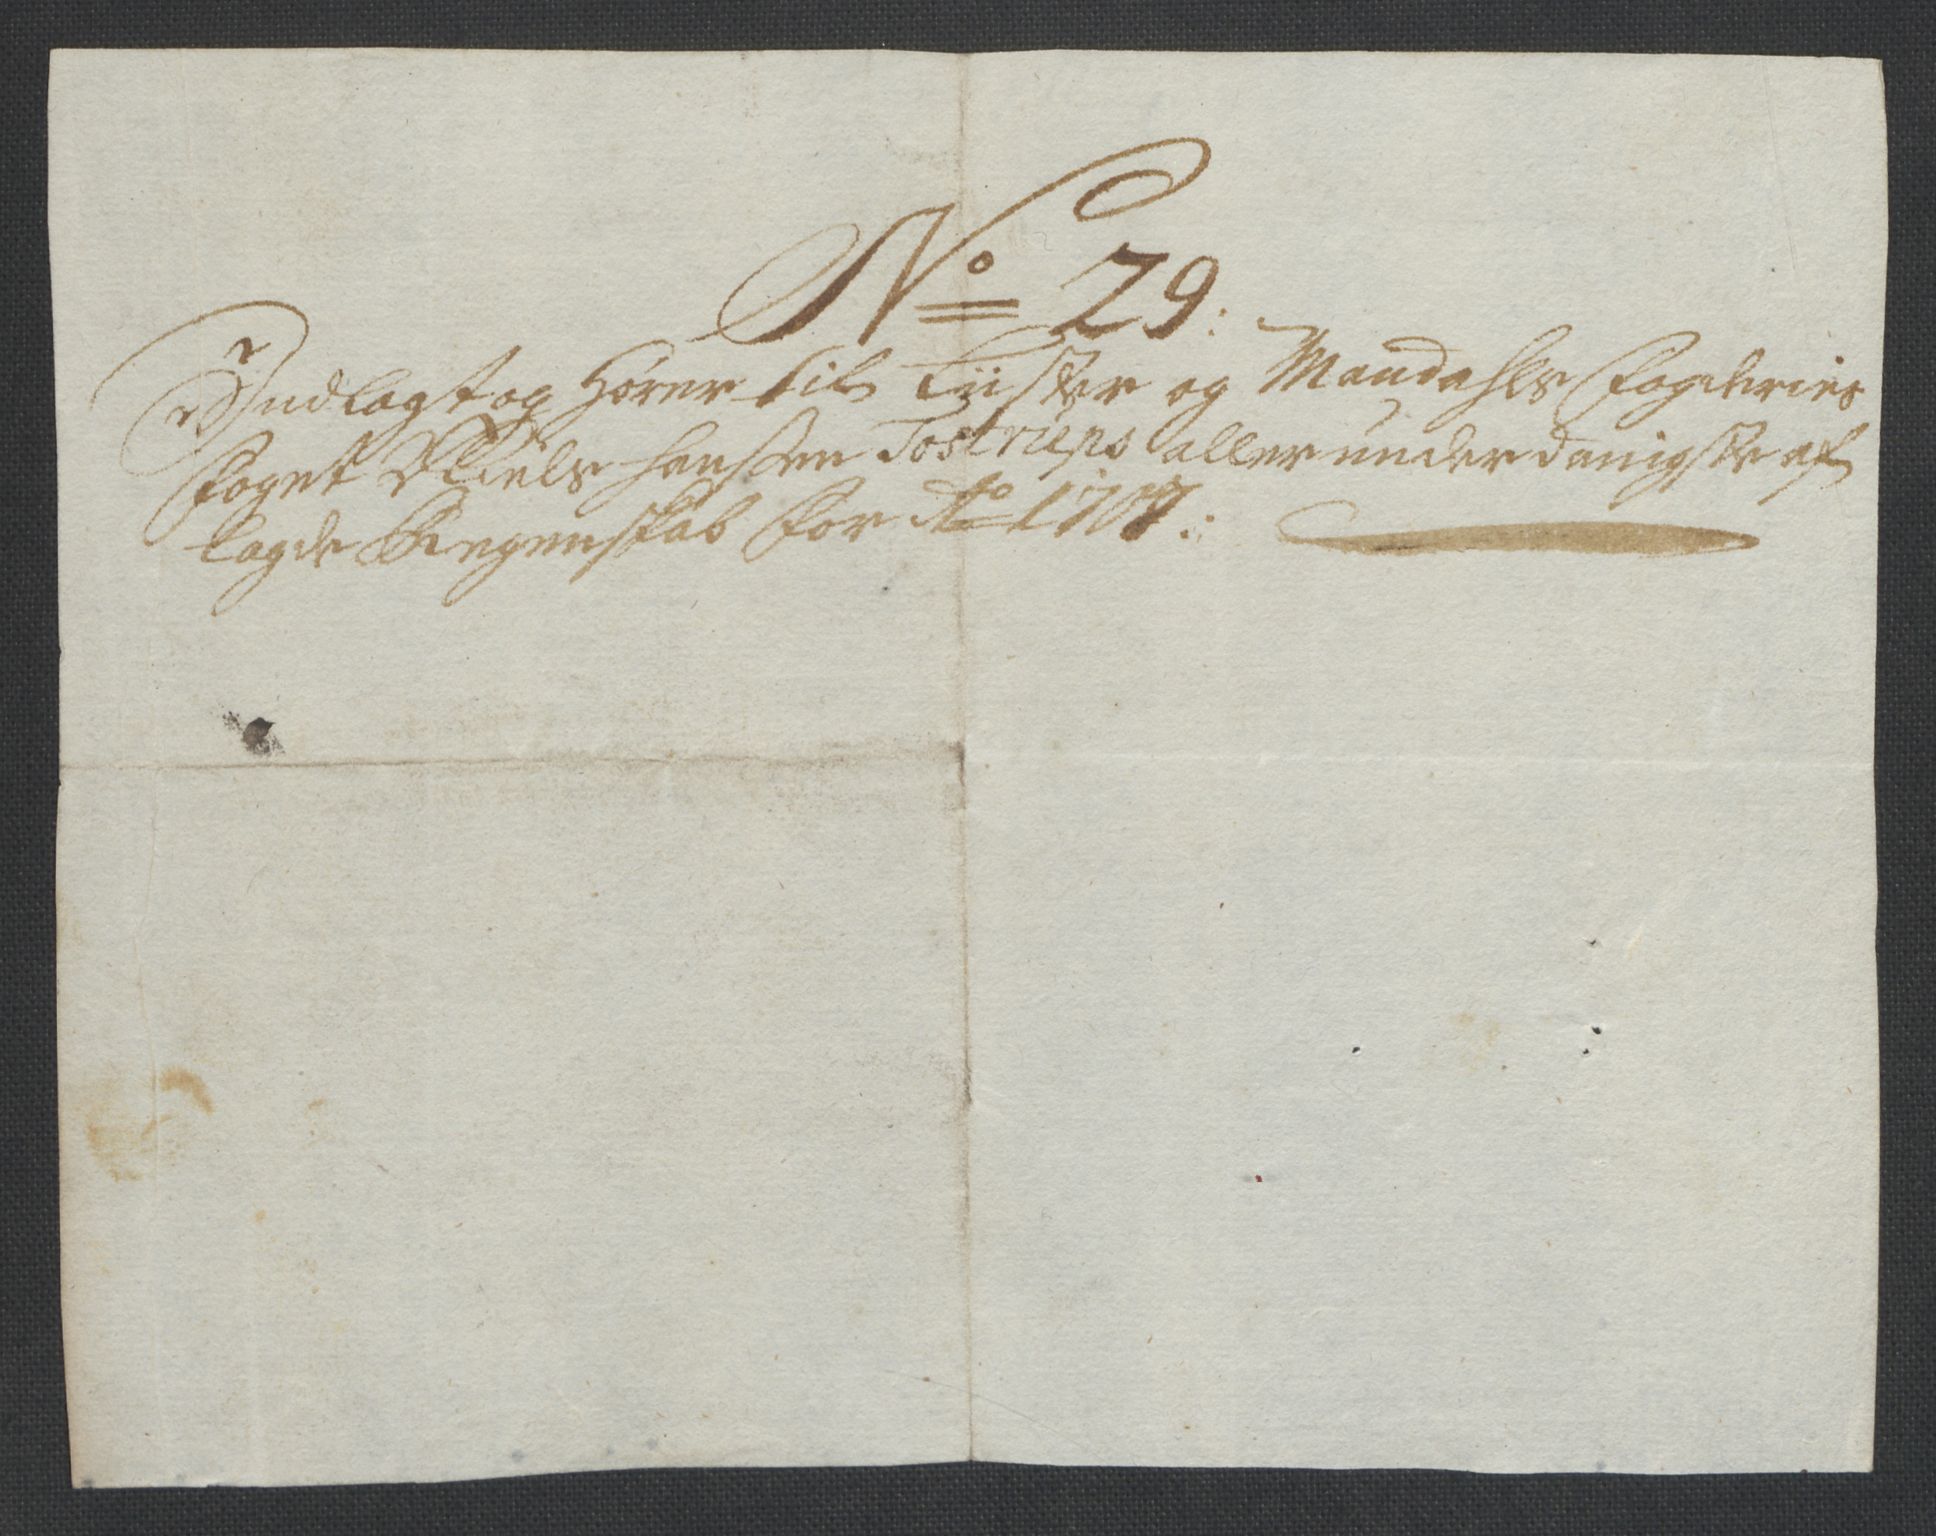 No 29:
Indlagt og Hører til Lister og Mandahls Fogderies
Foget Niels Hansen Tostrups allerunderdanigste af
lagde Regenskab for Ao 1707: